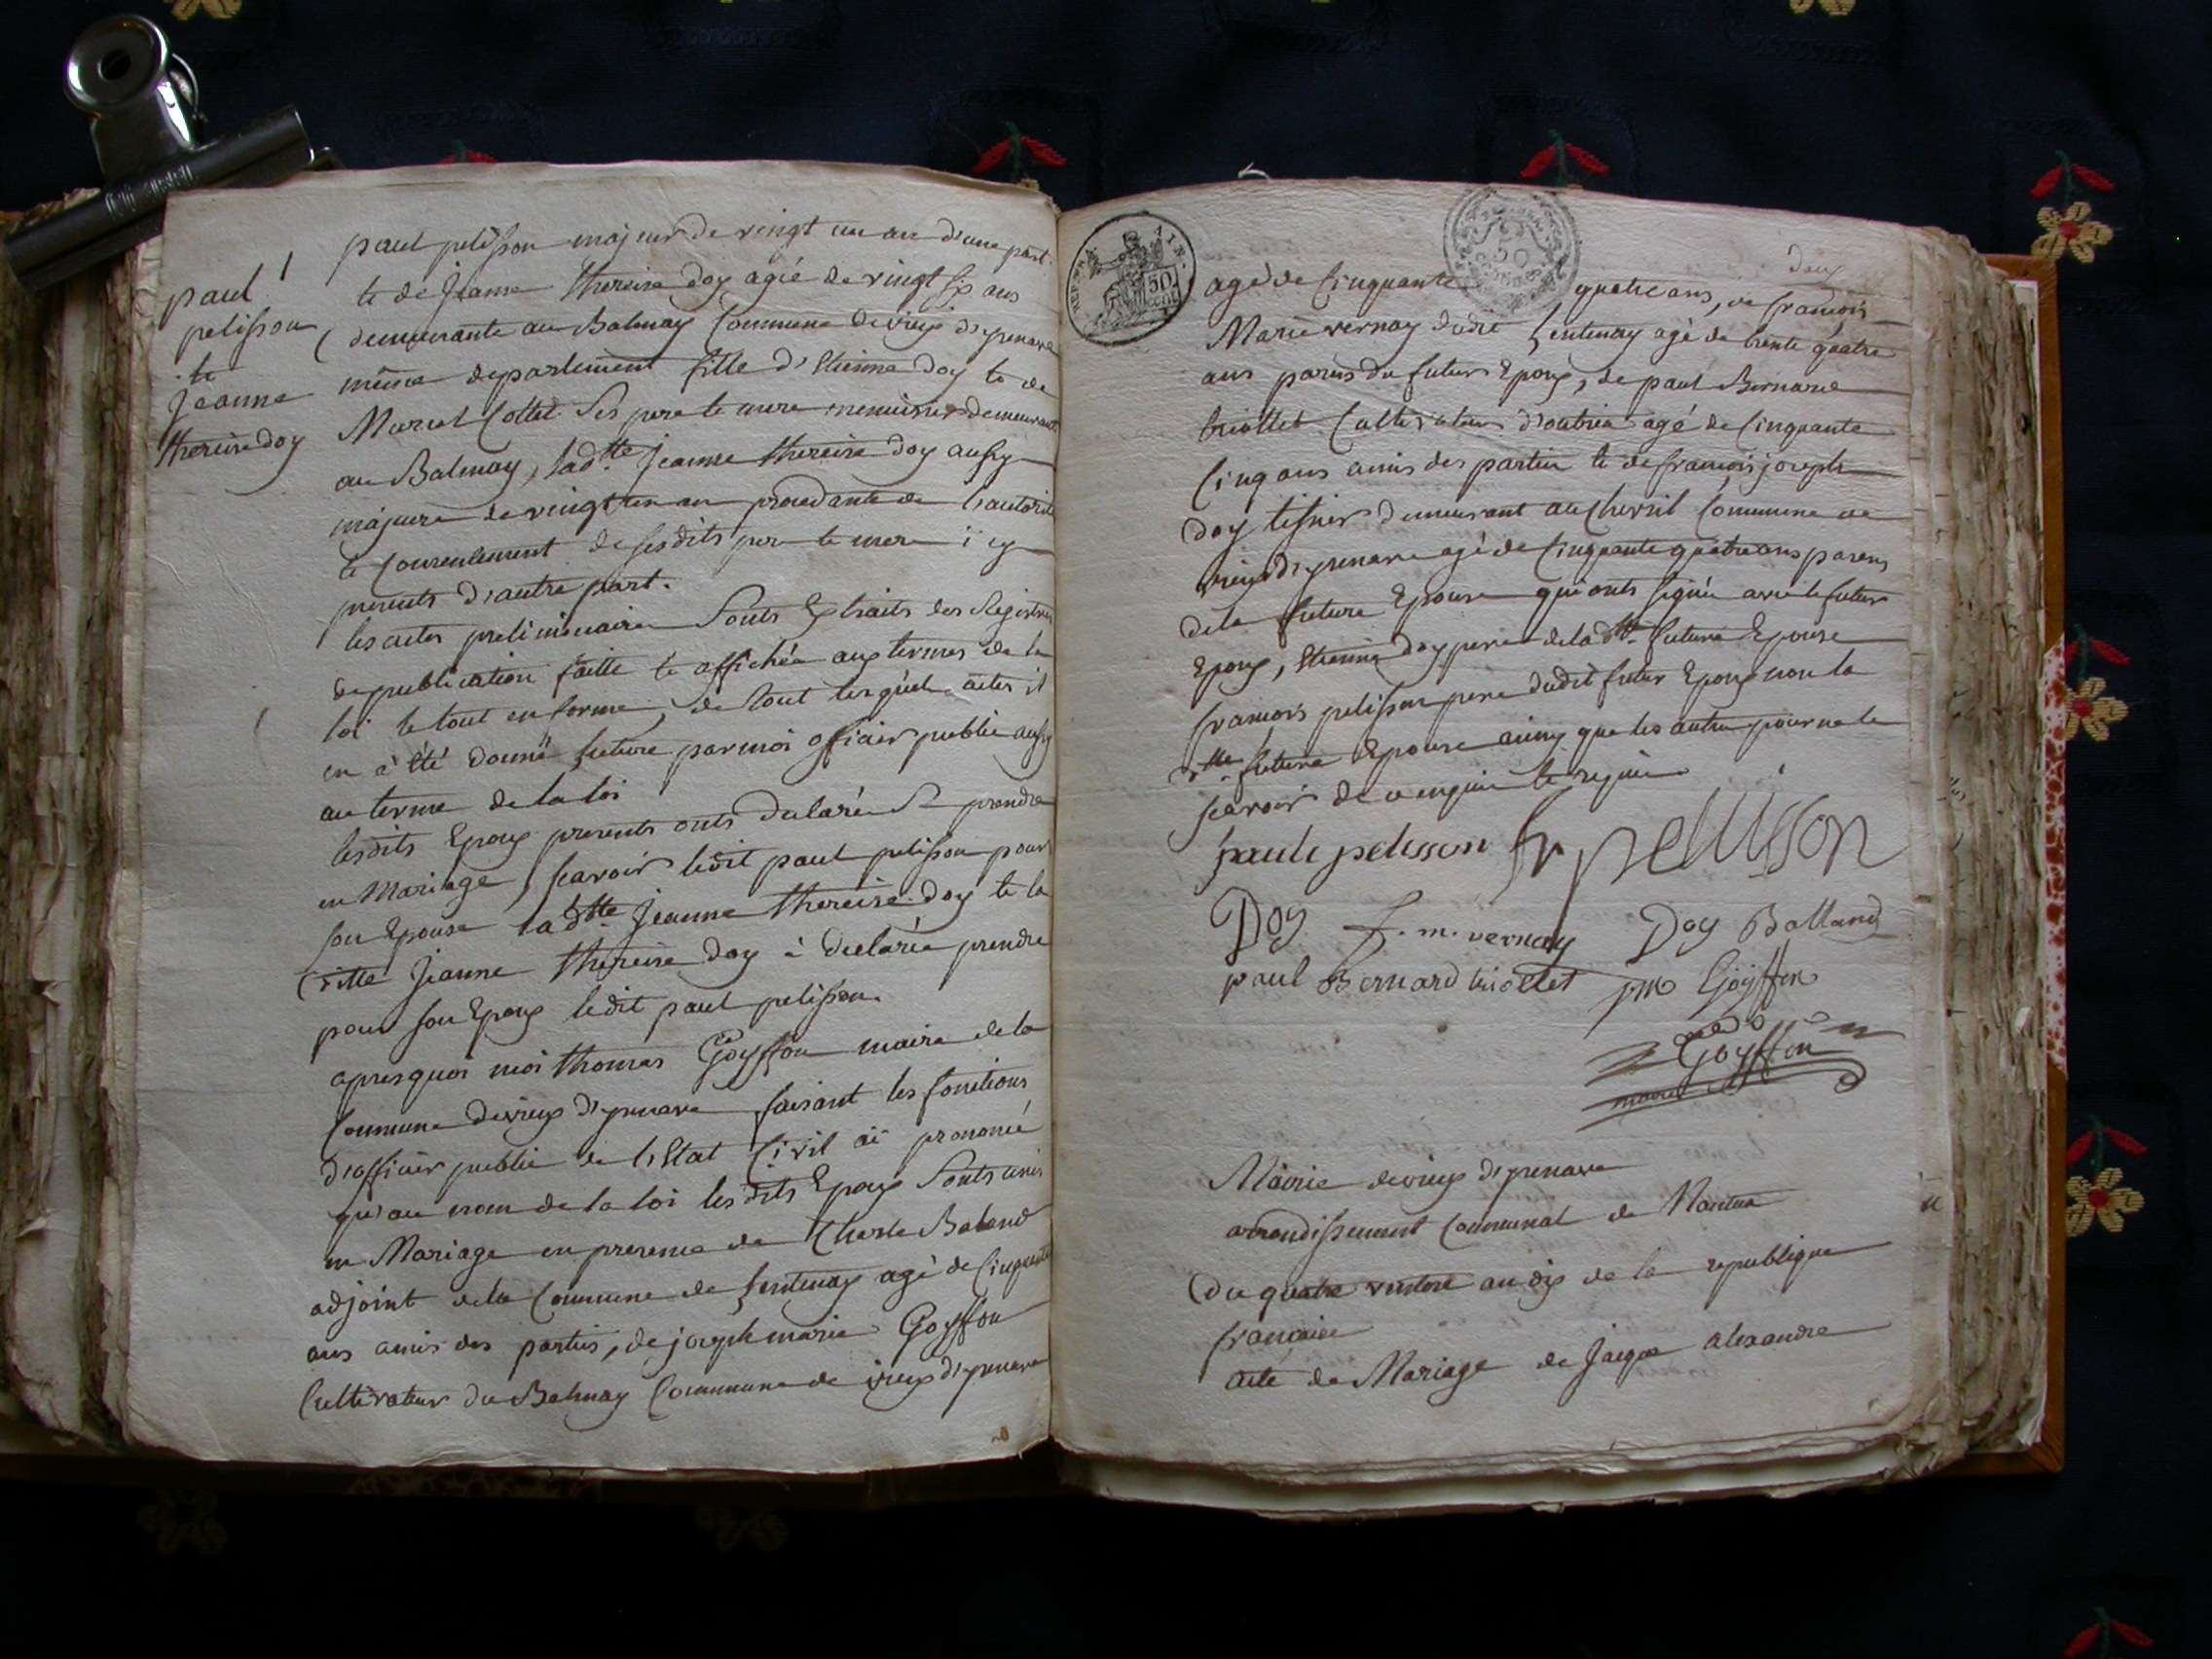 paul
pelisson
te
Jeanne
thereise doy
paul pelisson majeur de vingt un an d'une part.
te de Jeanne thereise doy agié de vingt six ans
demeurante au Balmay Commune de vieux d'yzenave
même departement fille d'Etienne doy te de
Collet Ses pere te mere demeurant
au Balmay, lad.tte Jeanne thereise doy aussy
majeure de vingt un an procedante de l'autorité
te Consentement de sesdits pere te mere icy
presents d'autre part.
les actes preliminaire Sonts Extraits des Registres
de publication faitte te affichée aux termes de la
loi le tout en forme, de tout lesquel actes il
en à été donné lecture par moi officier public aussy
au terme de la loi
lesdits Epoux presents onts declarée Se prendre
en Mariage, scavoir ledit paul pelisson pour
son Epouse lad.tte Jeanne thereise doy te la
ditte Jeanne thereise doy à declarée prendre
pour son Epoux ledit paul pelisson.
apres quoi moi thomas Goyffon maire de la
Commune de vieux d'yzenave faisant les fonctions
d'officier public de l'Etat Civil aï prononcé
qu'au nom de la loi les dits Epoux Sonts unis
en Mariage en presence de Charle Baland
adjoint de la Commune de Lentenay agé de Cinquante
ans amis des parties, de joseph marie Goyffon
Cultivateur du Balmay Commune de vieux d'yzenave
REP. FRA. AIN.
50 cent
50
deux
agé de Cinquante quatre ans, de francois
Marie vernay dudit Lentenay agé de trente quatre
ans parens du futur Epoux, de paul Bernard
triollet Cultivateur d'outria agé de Cinquante
Cinq ans amis des parties te de francois joseph
doy tisner demeurant au Chevril Commune de
vieux d'yzenave agé de Cinquante quatre ans parens
de la future Epouse qui onts signée avec le futur
Epoux, Etienne doy pere de la d.tte future Epouse
francois pelisson pere dudit futur Epoux non la
ditte future Epouse ainsy que les autre pour ne le
scavoir de ce enquie te requie
paule pelisson fr pellisson
Doy f. m. vernay Doy Balland
paul Bernard triollet jm Goyffon
Goyffon
maire
Mairie de vieux d'yzenave
arrondissement Communal de Nantua
Du quatre ventose an dix de la republique
française
acte de Mariage de Jacque alexandre